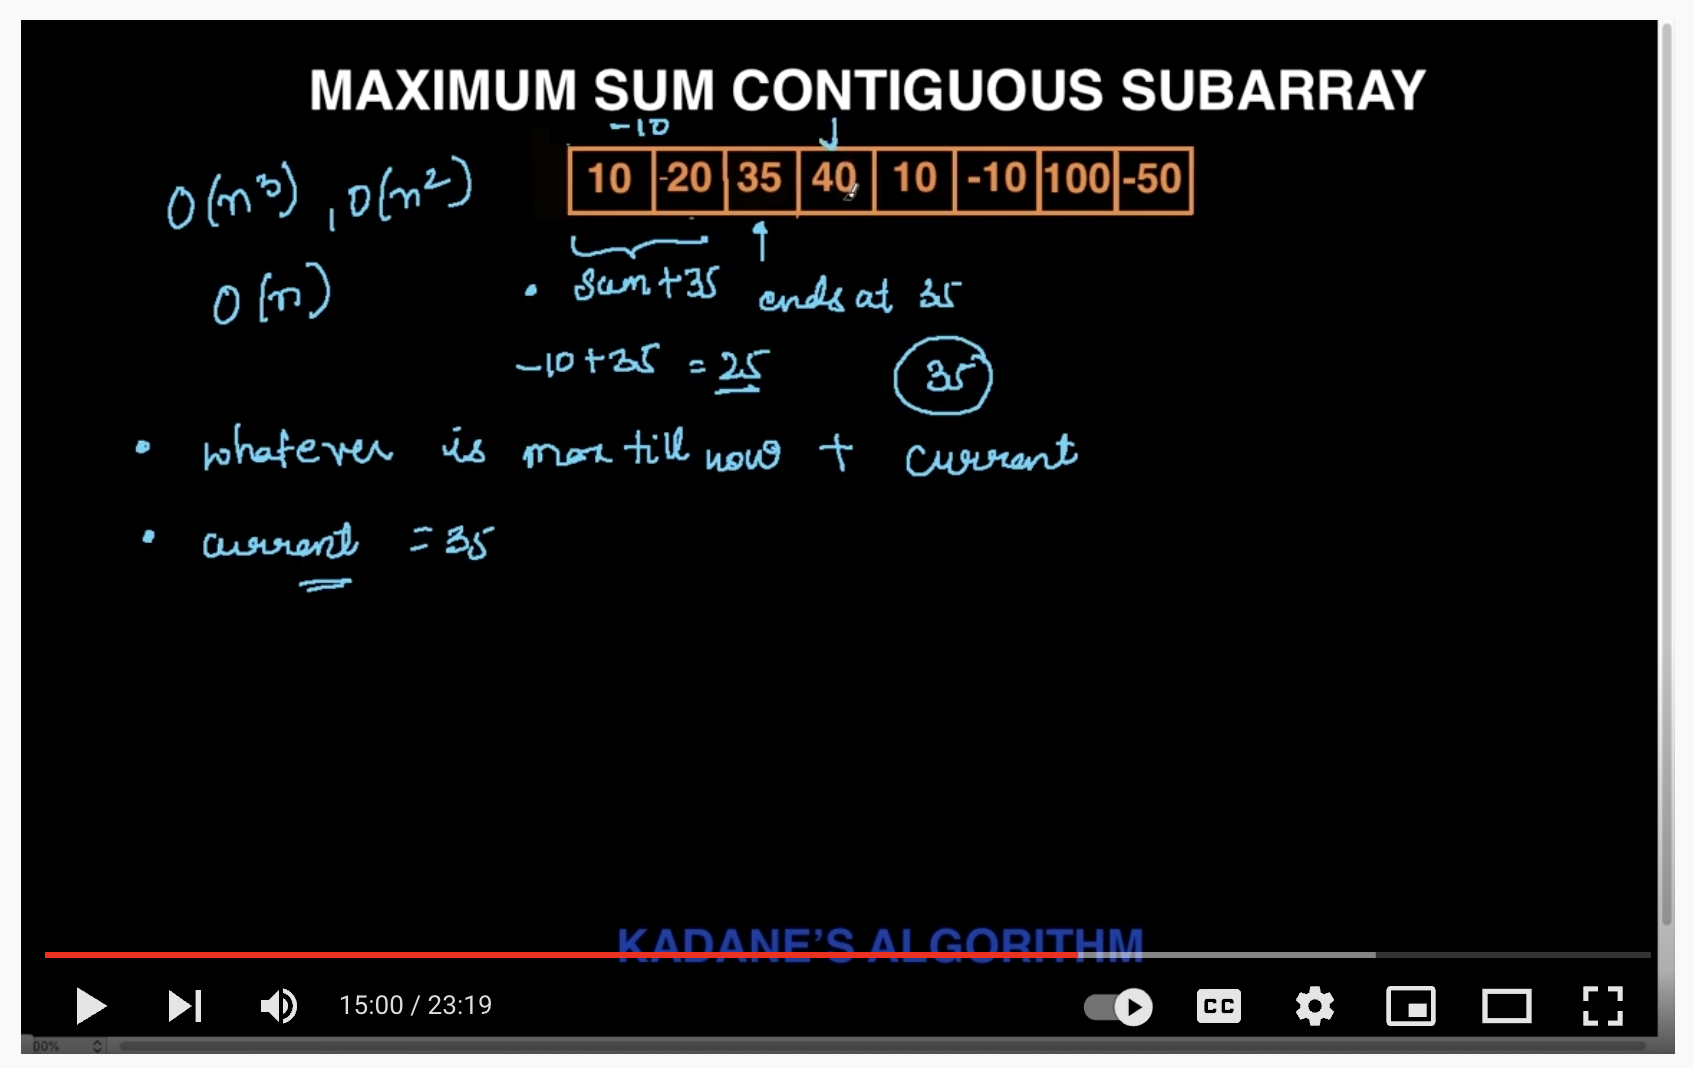 MAXIMUM SUM CONTIGUOUS SUBARRAY
-10
10 -20 35 40 10 -10 100 -50
O(n³), O(n²)
O(n)
• Sum+35 ends at 35
-10+35 = 25 35
• whatever is max till now + current
• current = 35
KADANE'S ALGORITHM
15:00 / 23:19
CC
00%